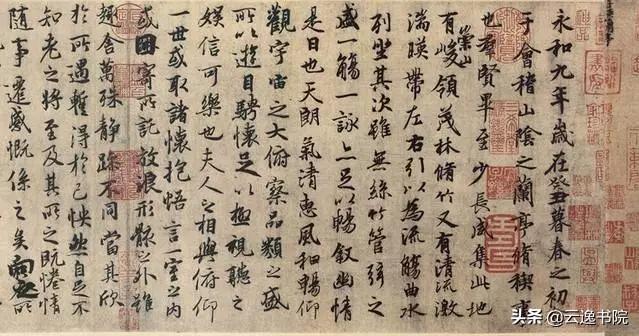 永和九年歲在癸丑暮春之初
于會稽山陰之蘭亭脩稧事
也羣賢畢至少長咸集此地
有崇山峻領茂林脩竹又有清流激
湍暎帶左右引以為流觴曲水
列坐其次雖無絲竹管弦之
盛一觴一詠亦足以暢敘幽情
是日也天朗氣清惠風和暢仰
觀宇宙之大俯察品類之盛
所以遊目騁懷足以極視聽之
娛信可樂也夫人之相與俯仰
一世或取諸懷抱悟言一室之內
或因寄所託放浪形骸之外雖
趣舍萬殊靜躁不同當其欣
於所遇蹔得於己怏然自足不
知老之將至及其所之既惓情
隨事遷感慨係之矣向之所
头条 @云逸书院